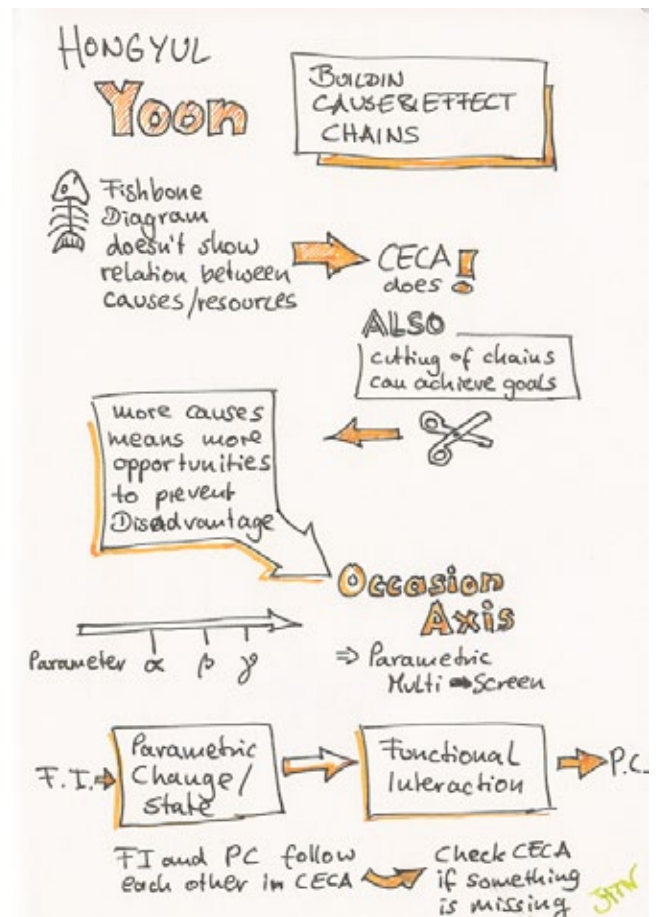 HONGYUL
Yoon
BUILDIN
CAUSE&EFFECT
CHAINS
Fishbone
Diagram
doesn't show
relation between
causes/resources
CECA
does !
ALSO
cutting of chains
can achieve goals
more causes
means more
opportunities
to prevent
Disadvantage
Occasion
Axis
Parameter α β γ
⇒ Parametric
Multi ➡ Screen
F.I.
Parametric
Change/
State
Functional
Interaction
P.C.
FI and PC follow
each other in CECA
Check CECA
if something
is missing